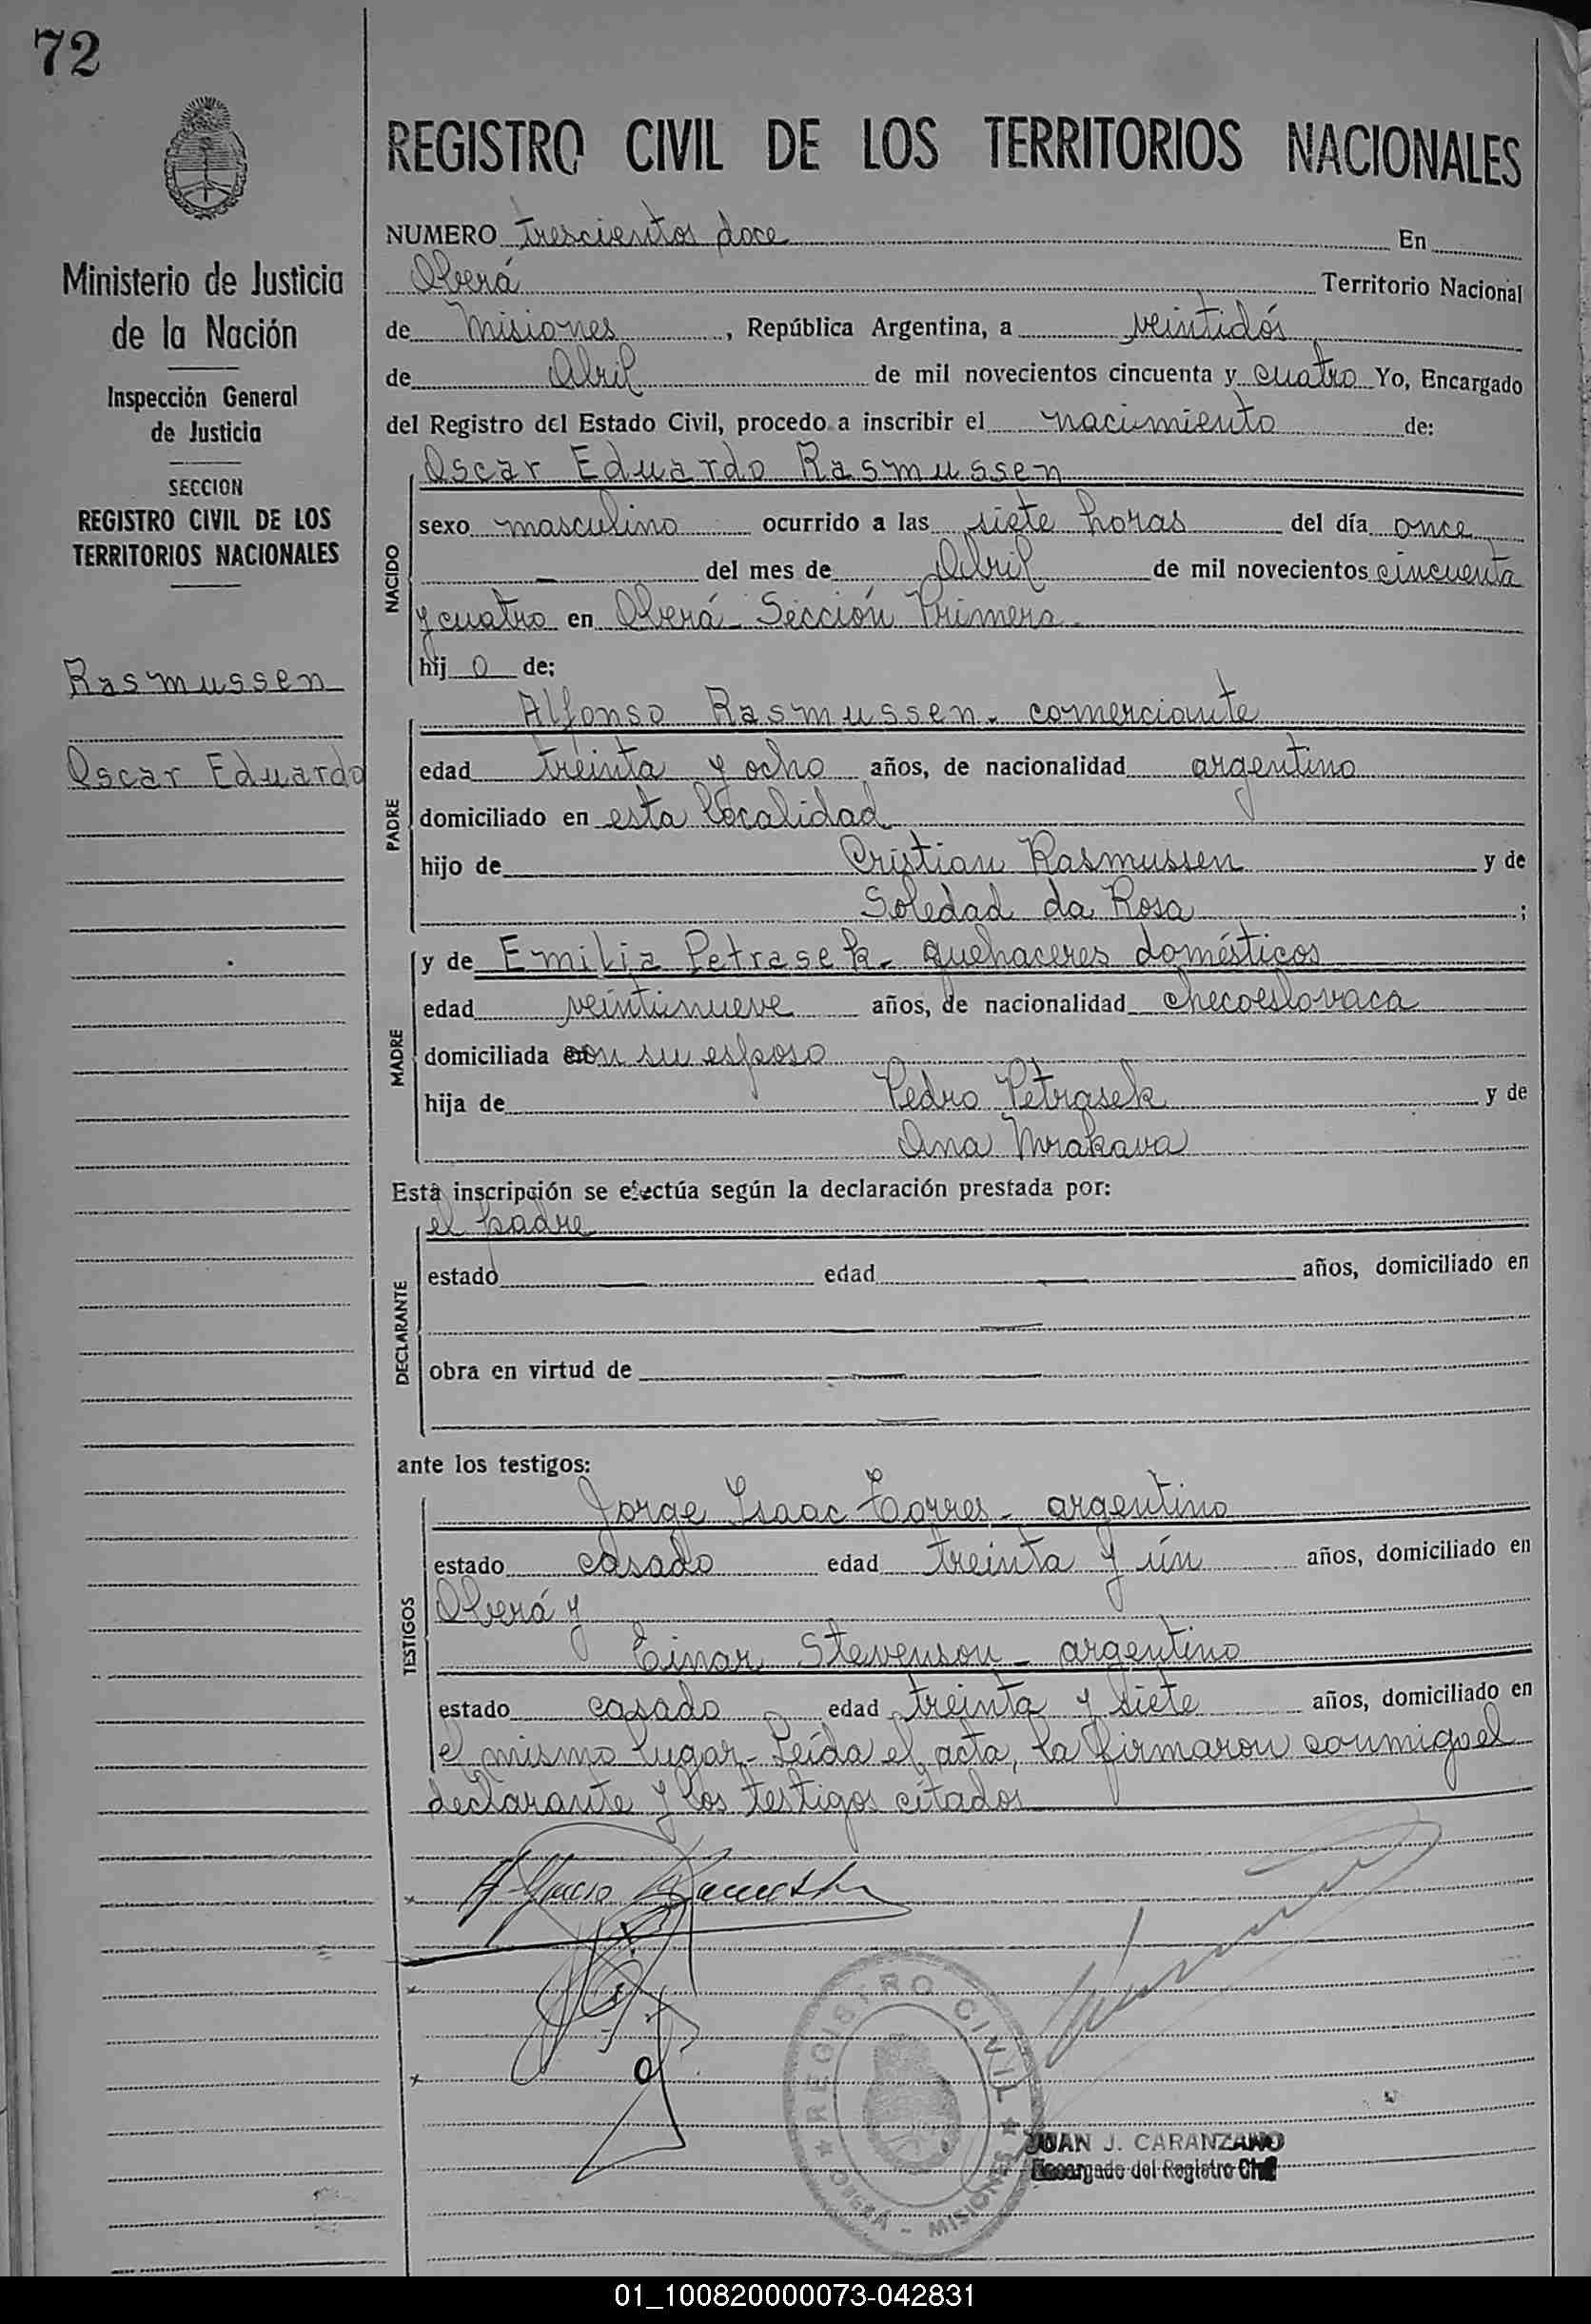 72
Ministerio de Justicia
de la Nación
Inspección General
de Justicia
SECCION
REGISTRO CIVIL DE LOS
TERRITORIOS NACIONALES
Rasmussen
Oscar Eduardo
REGISTRO CIVIL DE LOS TERRITORIOS NACIONALES
NUMERO trescientos doce En
Oberá Territorio Nacional
de Misiones, República Argentina, a veintidós
de Abril de mil novecientos cincuenta y cuatro Yo, Encargado
del Registro del Estado Civil, procedo a inscribir el nacimiento de:
NACIDO
Oscar Eduardo Rasmussen
sexo masculino ocurrido a las siete horas del día once
- del mes de Abril de mil novecientos cincuenta
y cuatro en Oberá - Sección Primera
hijo de:
PADRE
Alfonso Rasmussen - comerciante
edad treinta y ocho años, de nacionalidad argentino
domiciliado en esta localidad
hijo de Cristian Rasmussen y de
Soledad da Rosa ;
MADRE
y de Emilia Petrasek - quehaceres domésticos
edad veintinueve años, de nacionalidad checoeslovaca
domiciliada con su esposo
hija de Pedro Petrasek y de
Ana Mrakava
Esta inscripción se efectúa según la declaración prestada por:
DECLARANTE
el padre
estado — edad — años, domiciliado en
— —
obra en virtud de — —
—
ante los testigos:
TESTIGOS
Jorge Isaac Torres - argentino
estado casado edad treinta y ún años, domiciliado en
Oberá y
Einar Stevenson - argentino
estado casado edad treinta y siete años, domiciliado en
el mismo lugar - Leída el acta, la firmaron conmigo el
declarante y los testigos citados
REGISTRO CIVIL
OBERA - MISIONES
JUAN J. CARANZANO
Encargado del Registro Civil
01_100820000073-042831